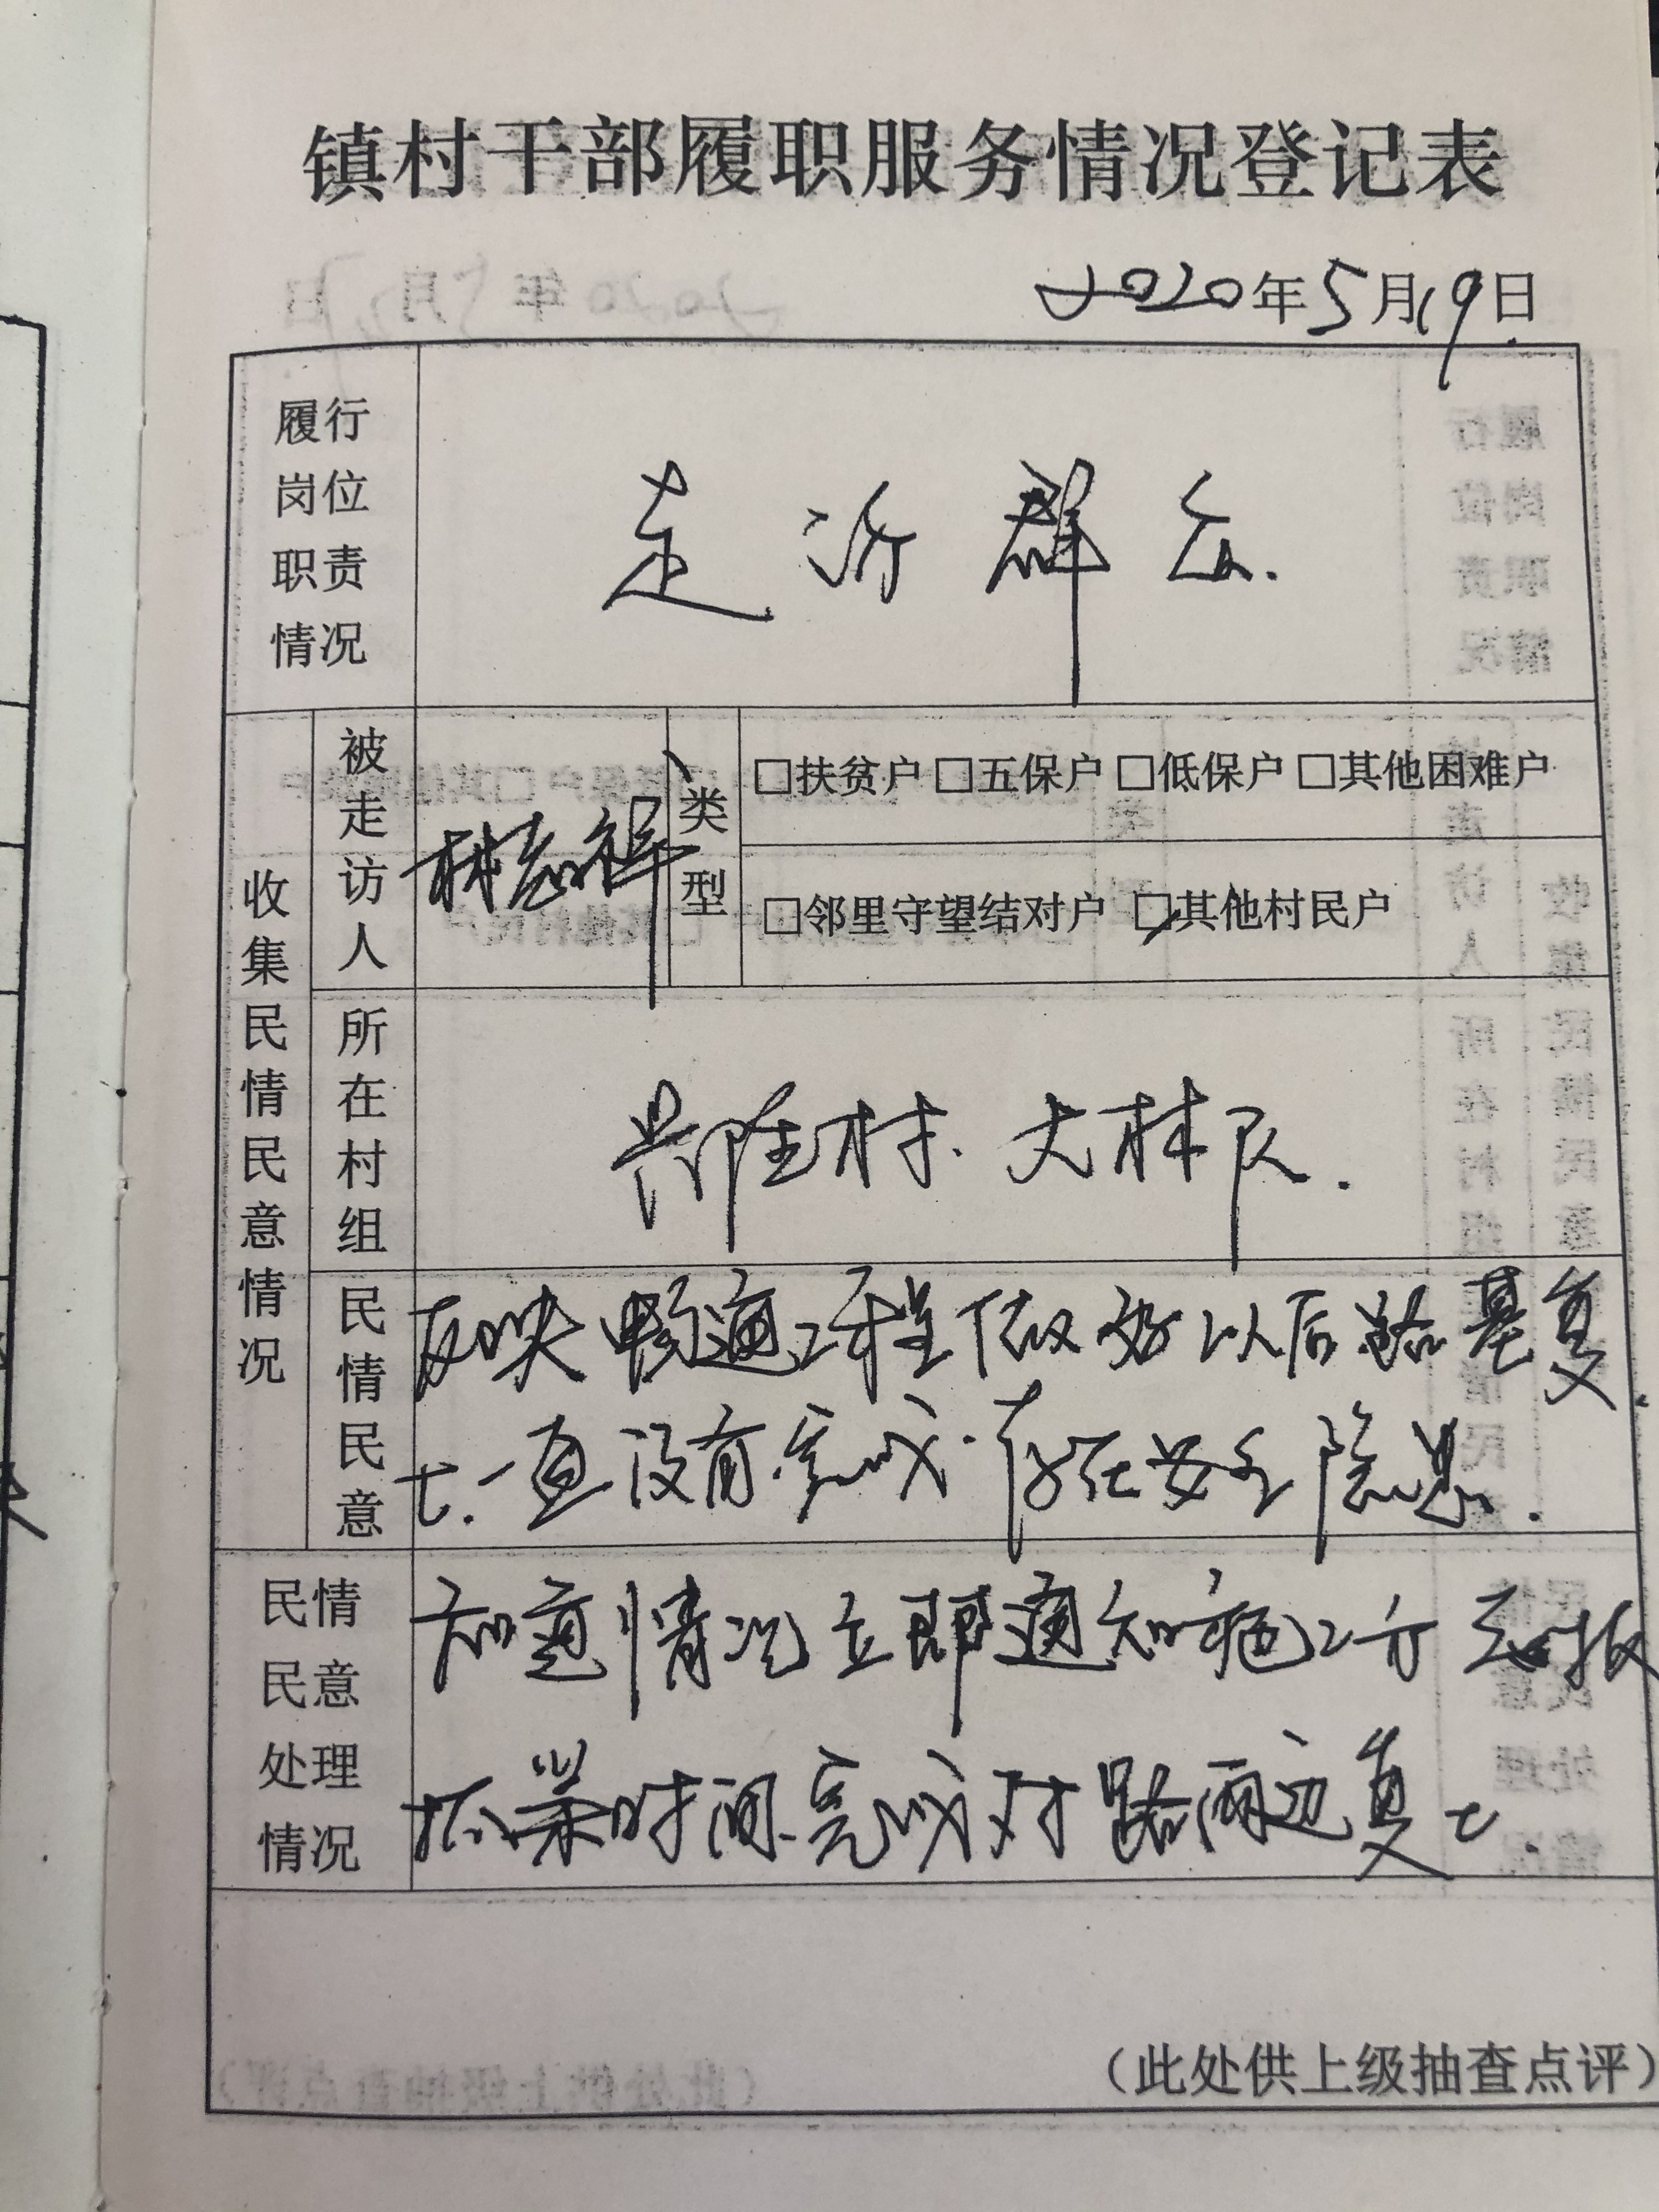 镇村干部履职服务情况登记表
2020年5月19日
履行岗位职责情况
走访群众.
收集民情民意情况
被走访人
林志祥
类型
□扶贫户 □五保户 □低保户 □其他困难户
□邻里守望结对户 ☑其他村民户
所在村组
兴隆村. 大林队.
民情民意
反映畅通工程做好以后路基复
土.一直没有完成.存在安全隐患.
民情民意处理情况
知道情况立即通知施工方
抓紧时间.完成对路两边复土.
（此处供上级抽查点评）